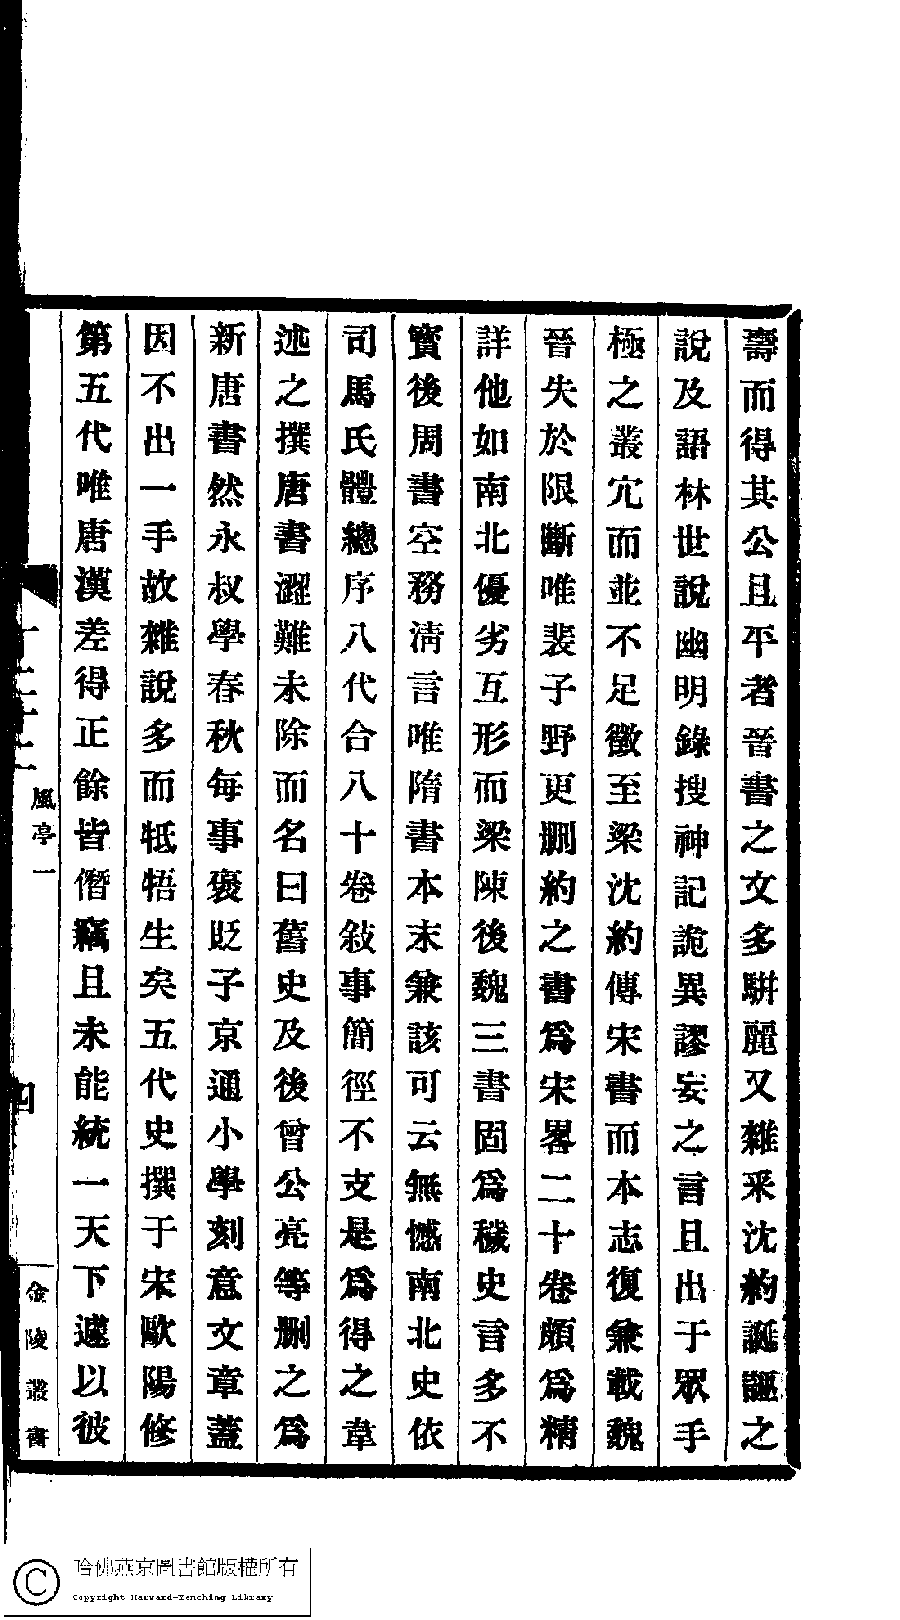 壽而得其公且平者晉書之文多駢麗又雜釆沈約誕誣之
說及語林世說幽明錄搜神記詭異謬妄之言且出于眾手
極之叢冗而並不足徵至梁沈約傳宋書而本志復兼載魏
晉失於限斷唯裴子野更刪約之書爲宋畧二十卷頗爲精
詳他如南北優劣互形而梁陳後魏三書固爲穢史言多不
實後周書空務清言唯隋書本末兼該可云無憾南北史依
司馬氏體總序八代合八十卷敍事簡徑不支是爲得之韋
述之撰唐書澀難未除而名曰舊史及後曾公亮等刪之爲
新唐書然永叔學春秋每事褒貶子京通小學刻意文章蓋
因不出一手故雜說多而牴牾生矣五代史撰于宋歐陽修
第五代唯唐漢差得正餘皆僭竊且未能統一天下遽以彼
風亭一
四
金陵叢書
哈佛燕京圖書館版權所有
Copyright Harvard-Yenching Library